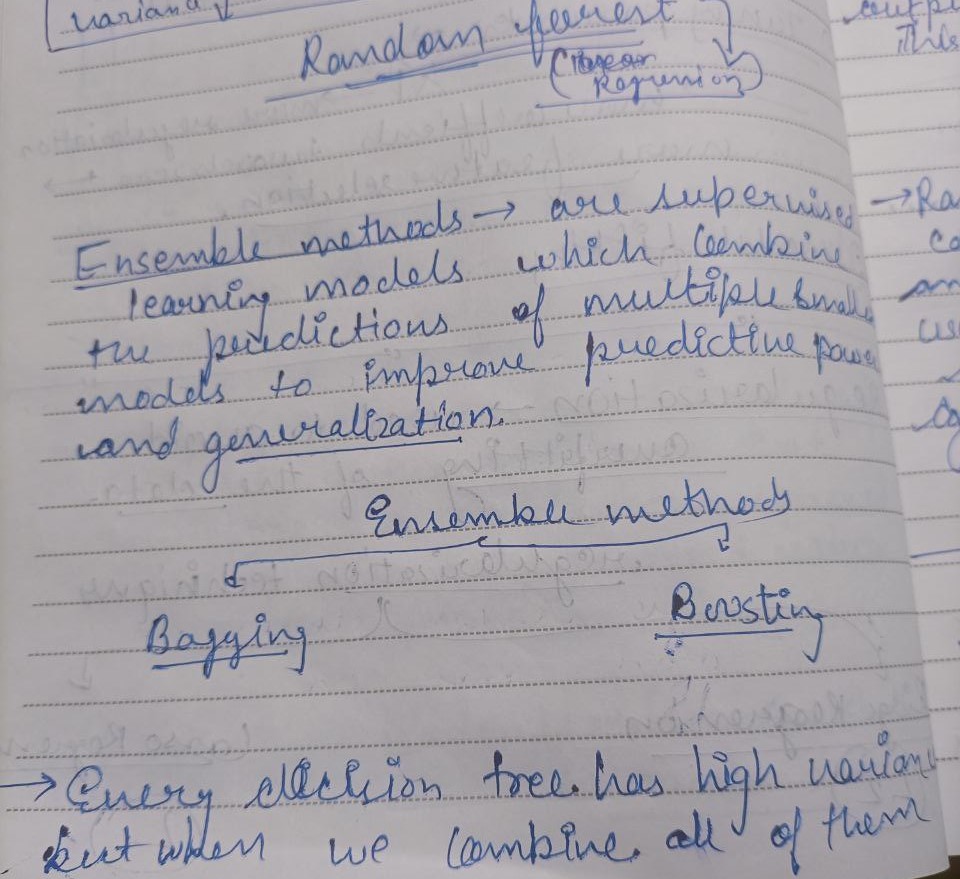 varian
Random forest
Regression)
Ensemble methods → are supervised
learning models which combine
the predictions of multiple small
models to improve predictive power
and generalization.
Ensemble methods
Bagging
Boosting
→ Every decision tree has high varian
but when we combine all of them
outp
This
→ Ra
co
am
us